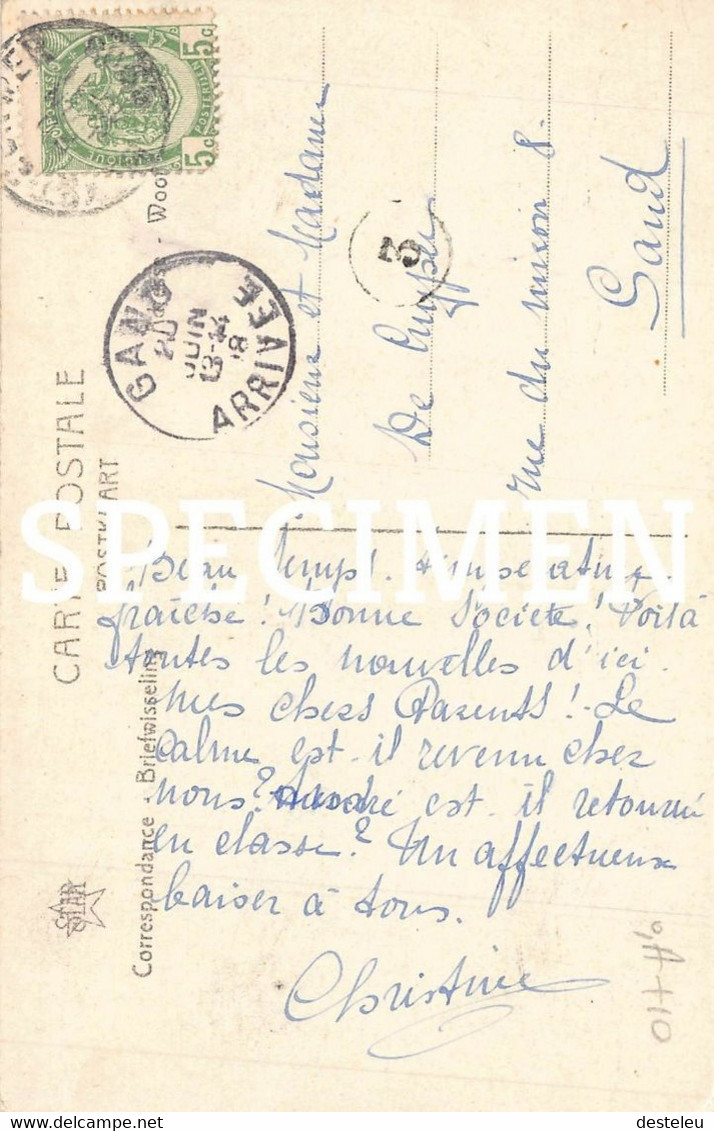 CARTE POSTALE
POSTKAART
Correspondance - Briefwisseling
STAR
5c
5c
GAND
20
JUIN
18
ARRIVÉE
5
Monsieur et Madame
De Cuyper
rue du 8.
Gand
Beau Temps!
fraiche! Bonne Société! Voilà
toutes les nouvelles d'ici
mes chers Parents! Le
calme est-il revenu chez
nous? André est-il retourné
en classe? Un affectueux
baiser à tous.
Christine
SPECIMEN
delcampe.net
desteleu